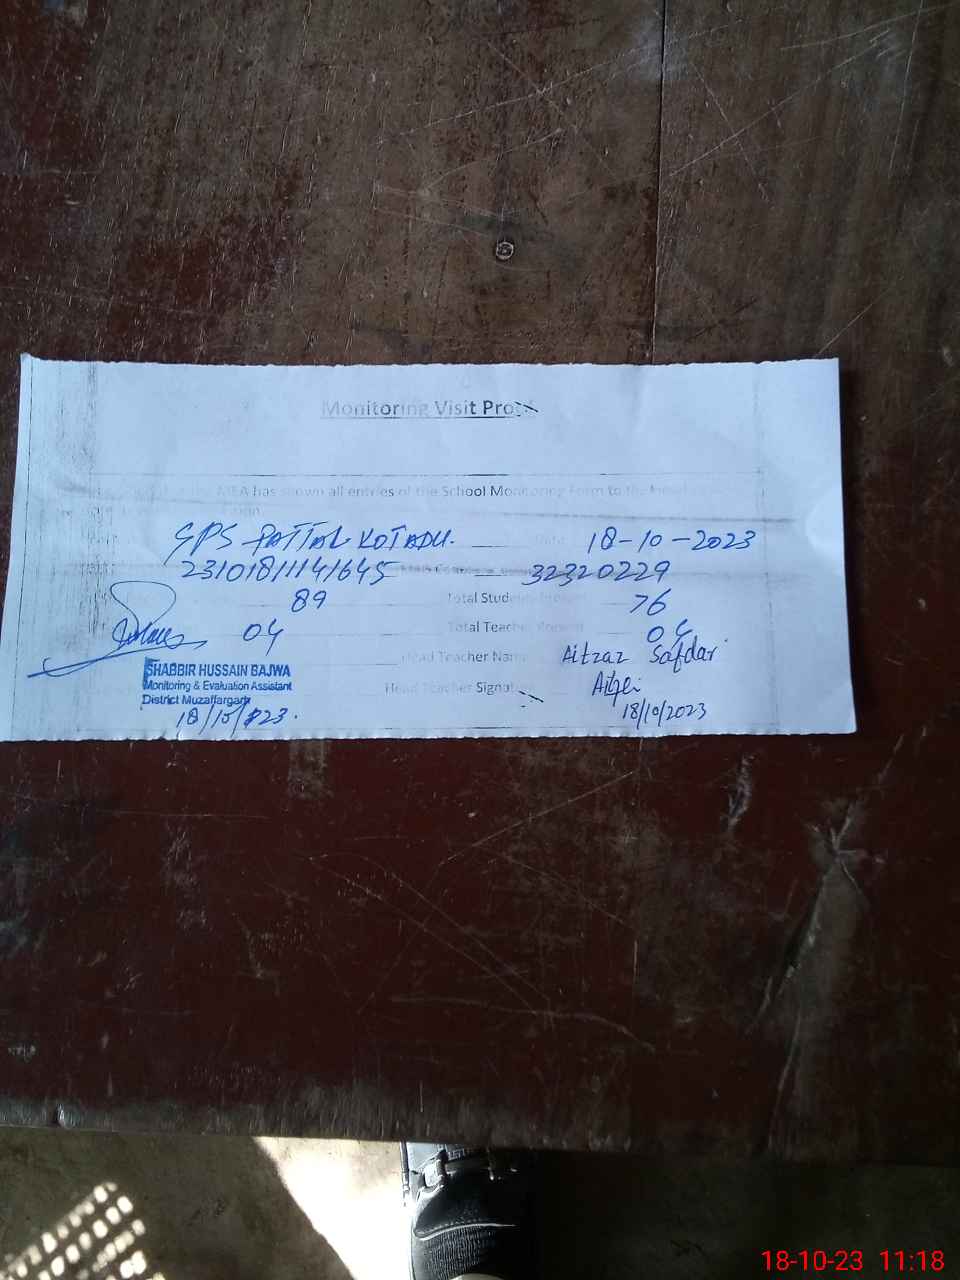 Monitoring Visit Proof
MEA has shown all entries of the School Monitoring Form to the Head
GPS PATTAL KOTADU. Date 18-10-2023
32320229
89 Total Students Present 76
04 Total Teacher Present 04
Head Teacher Name Aitzaz Safdar
SHABBIR HUSSAIN BAJWA
Monitoring & Evaluation Assistant Head Teacher Signature
District Muzaffargarh
18/10/2023. 18/10/2023
18-10-23 11:18